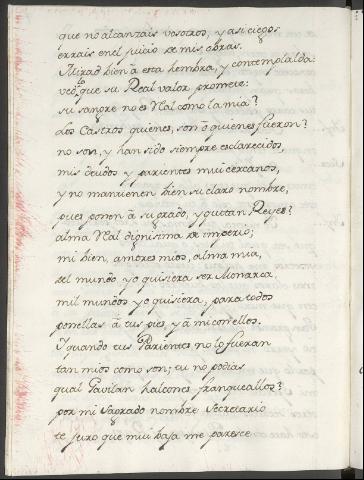 que no alcanzais vosotros, y asi ciegos
errais en el juicio de mis obras.
Mirad bien â esta hembra, y contempladla:
ved lo que su Real valor promete:
su sangre no es Rl. como la mia?
Los Castros quienes, son ô quienes fueron?
no son, y han sido siempre esclarecidos,
mis deudos y parientes mui cercanos,
y no mantienen bien su claro nombre,
pues ponen â su grado, y quitan Reyes?
alma Rl. dignisima de imperio;
mi bien, amores mios, alma mia,
del mundo yo quisiera ser Monarca,
mil mundos yo quisiera, para todos
ponellas â tus pies, y â mi con ellos.
Y quando tus Parientes no lo fueran
tan mios como son; tu no podias
qual Gavilan halcones franqueallos?
por mi Sagrado nombre Secretario
te juro que mui baja me parece